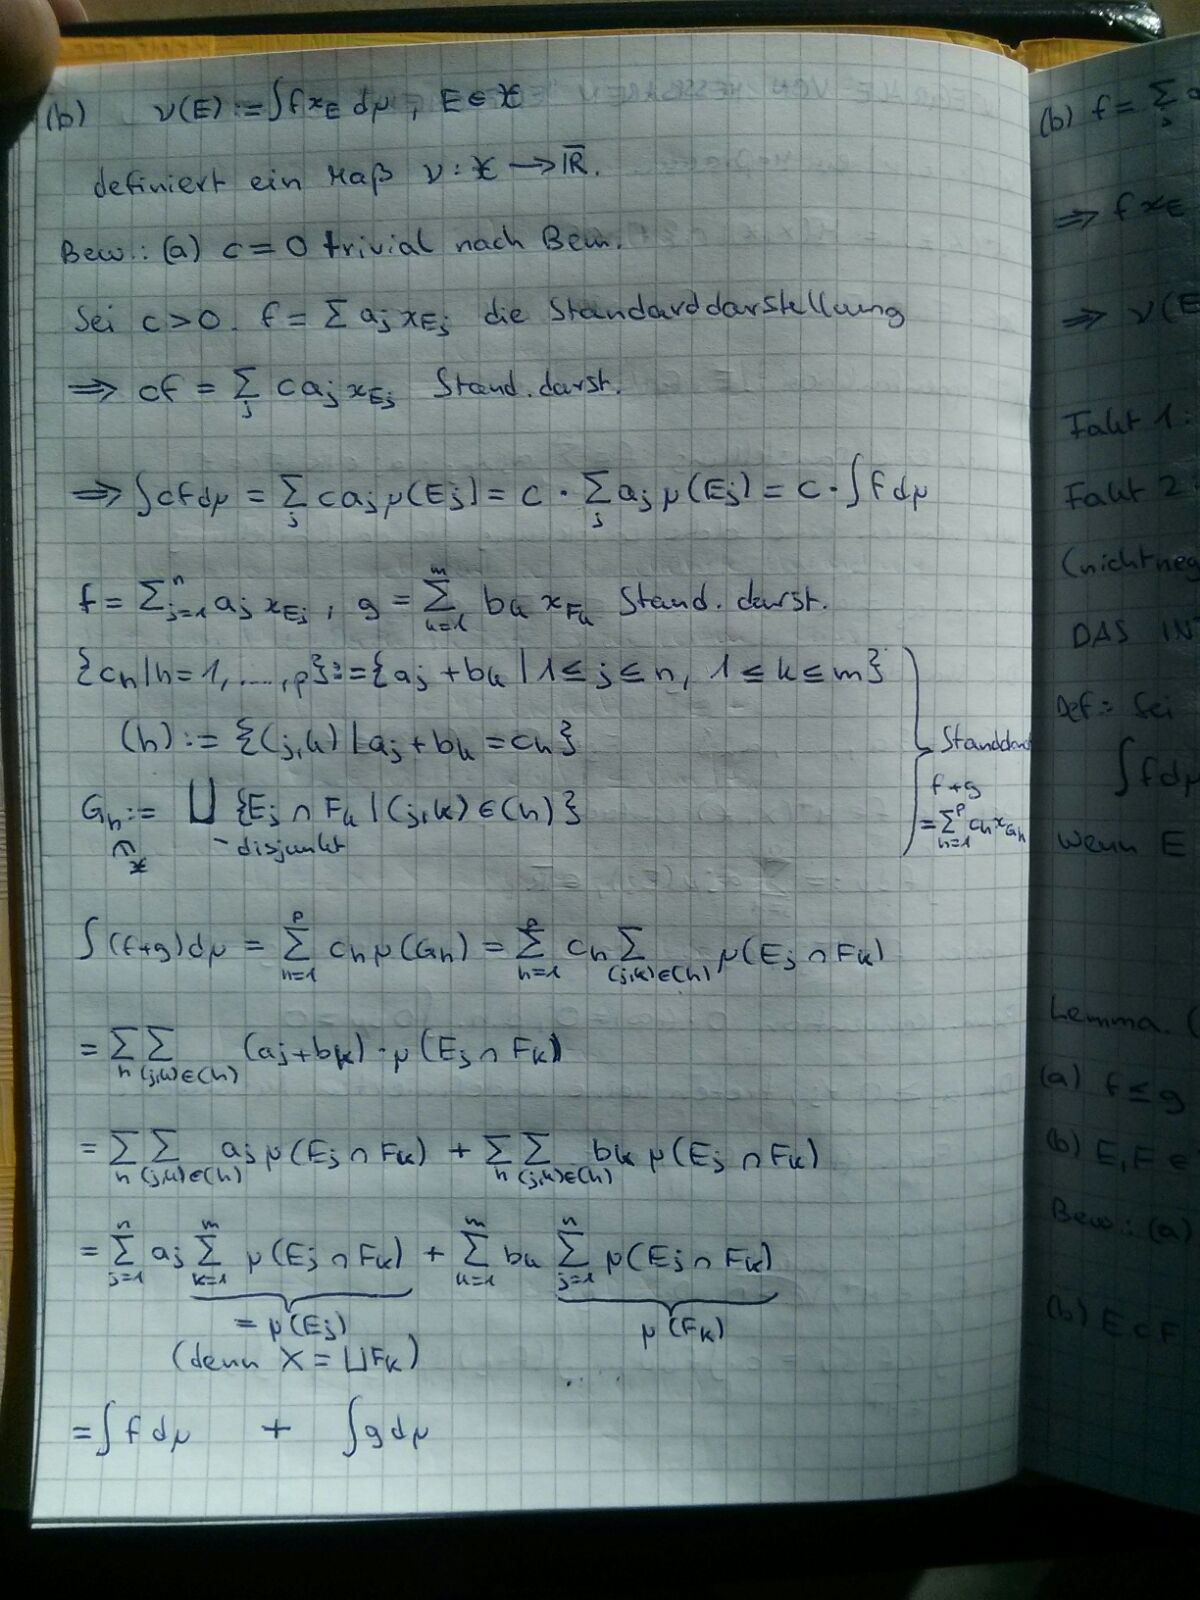 (b) ν(E) := ∫f χ_E dμ, E ∈ X
definiert ein Maß ν : X → R̅.
Bew.: (a) c = 0 trivial nach Bem.
Sei c > 0. f = Σ a_j χ_{E_j} die Standarddarstellung
⇒ cf = Σ_j c a_j χ_{E_j} Stand.darst.
⇒ ∫cf dμ = Σ_j c a_j μ(E_j) = c · Σ_j a_j μ(E_j) = c · ∫f dμ
f = Σ_{j=1}^n a_j χ_{E_j}, g = Σ_{k=1}^m b_k χ_{F_k} Stand. darst.
{c_h | h = 1, ...., p} := {a_j + b_k | 1 ≤ j ≤ n, 1 ≤ k ≤ m}
(h) := {(j,k) | a_j + b_k = c_h}
G_h := ⊔ {E_j ∩ F_k | (j,k) ∈ (h)}
∈ X
- disjunkt
f + g
= Σ_{h=1}^p c_h χ_{G_h}
∫(f+g) dμ = Σ_{h=1}^p c_h μ(G_h) = Σ_{h=1}^p c_h Σ_{(j,k)∈(h)} μ(E_j ∩ F_k)
= Σ_h Σ_{(j,k)∈(h)} (a_j + b_k) · μ(E_j ∩ F_k)
= Σ_h Σ_{(j,k)∈(h)} a_j μ(E_j ∩ F_k) + Σ_h Σ_{(j,k)∈(h)} b_k μ(E_j ∩ F_k)
= Σ_{j=1}^n a_j Σ_{k=1}^m μ(E_j ∩ F_k) + Σ_{k=1}^m b_k Σ_{j=1}^n μ(E_j ∩ F_k)
= μ(E_j) μ(F_k)
(denn X = ⊔F_k)
= ∫f dμ + ∫g dμ
(b) f = Σ_j
⇒ f χ_E
⇒ ν(E
Fakt 1:
Fakt 2:
(nichtneg
DAS IN
Def: Sei
∫f dμ
wenn E
Lemma. (
(a) f ≤ g
(b) E, F ∈
Bew.: (a)
(b) E ⊂ F